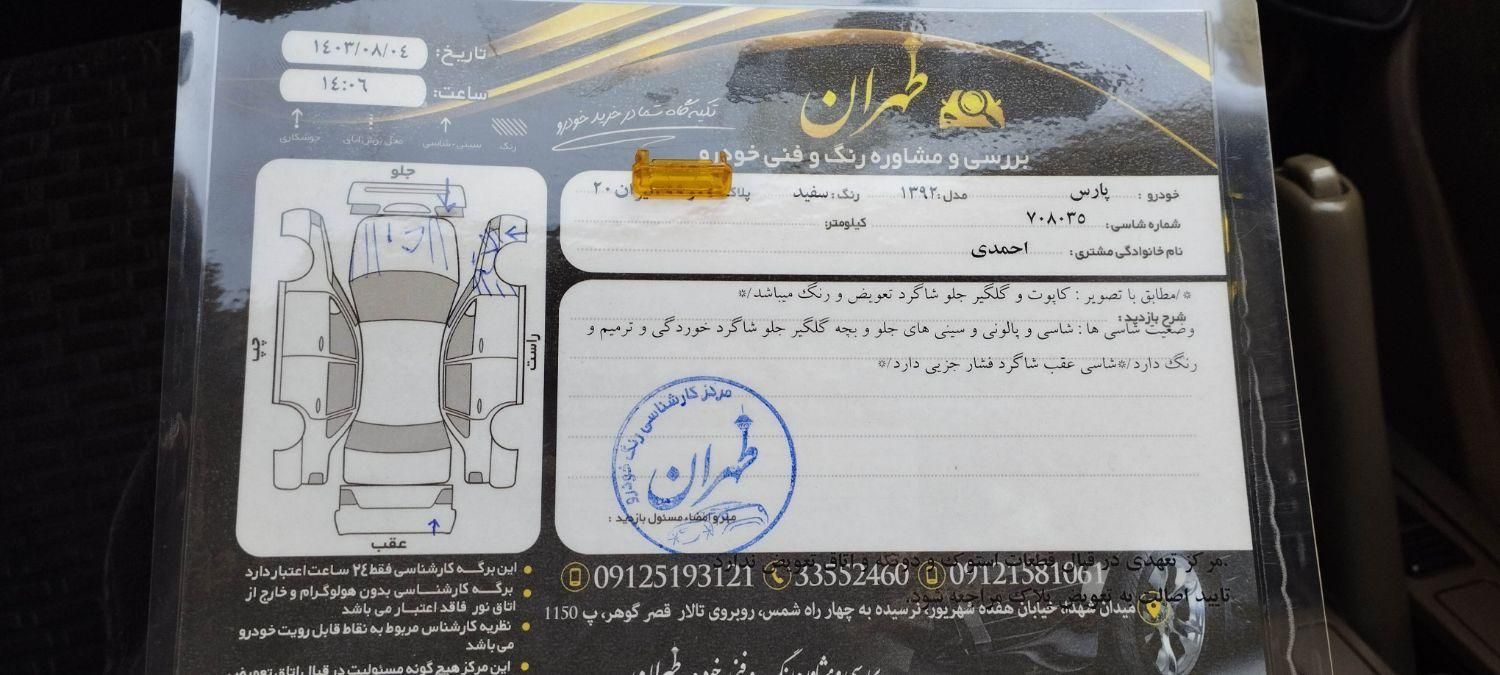 تاریخ: ١٤٠٣/٠٨/٠٤
ساعت: ١٤:٠٦
جوشکاری
سینی-شاسی
رنگ
طهران
تکیه گاه شما در خرید خودرو
بررسی و مشاوره رنگ و فنی خودرو
جلو
چپ
راست
عقب
خودرو : پارس مدل: ١٣٩٢ رنگ: سفید پلاک ٢٠
شماره شاسی: ٧٠٨٠٣٥ کیلومتر:
نام خانوادگی مشتری: احمدی
شرح بازدید:
*/مطابق با تصویر : کاپوت و گلگیر جلو شاگرد تعویض و رنگ میباشد/*
وضعیت شاسی ها : شاسی و پالونی و سینی های جلو و بچه گلگیر جلو شاگرد خوردگی و ترمیم و
رنگ دارد/*شاسی عقب شاگرد فشار جزیی دارد/*
مرکز کارشناسی رنگ خودرو
طهران
مهر و امضاء مسئول بازدید :
.مرکز تعهدی در قبال قطعات استوک و دوتکه و اتاق تعویض ندارد
تایید اصالت به تعویض پلاک مراجعه شود.
09125193121 33552460 09121581061
میدان شهدا، خیابان هفده شهریور، نرسیده به چهار راه شمس، روبروی تالار قصر گوهر، پ 1150
این برگه کارشناسی فقط ٢٤ ساعت اعتبار دارد
برگه کارشناسی بدون هولوگرام و خارج از
اتاق نور فاقد اعتبار می باشد
نظریه کارشناس مربوط به نقاط قابل رویت خودرو
می باشد
این مرکز هیچ گونه مسئولیت در قبال اتاق تعویض